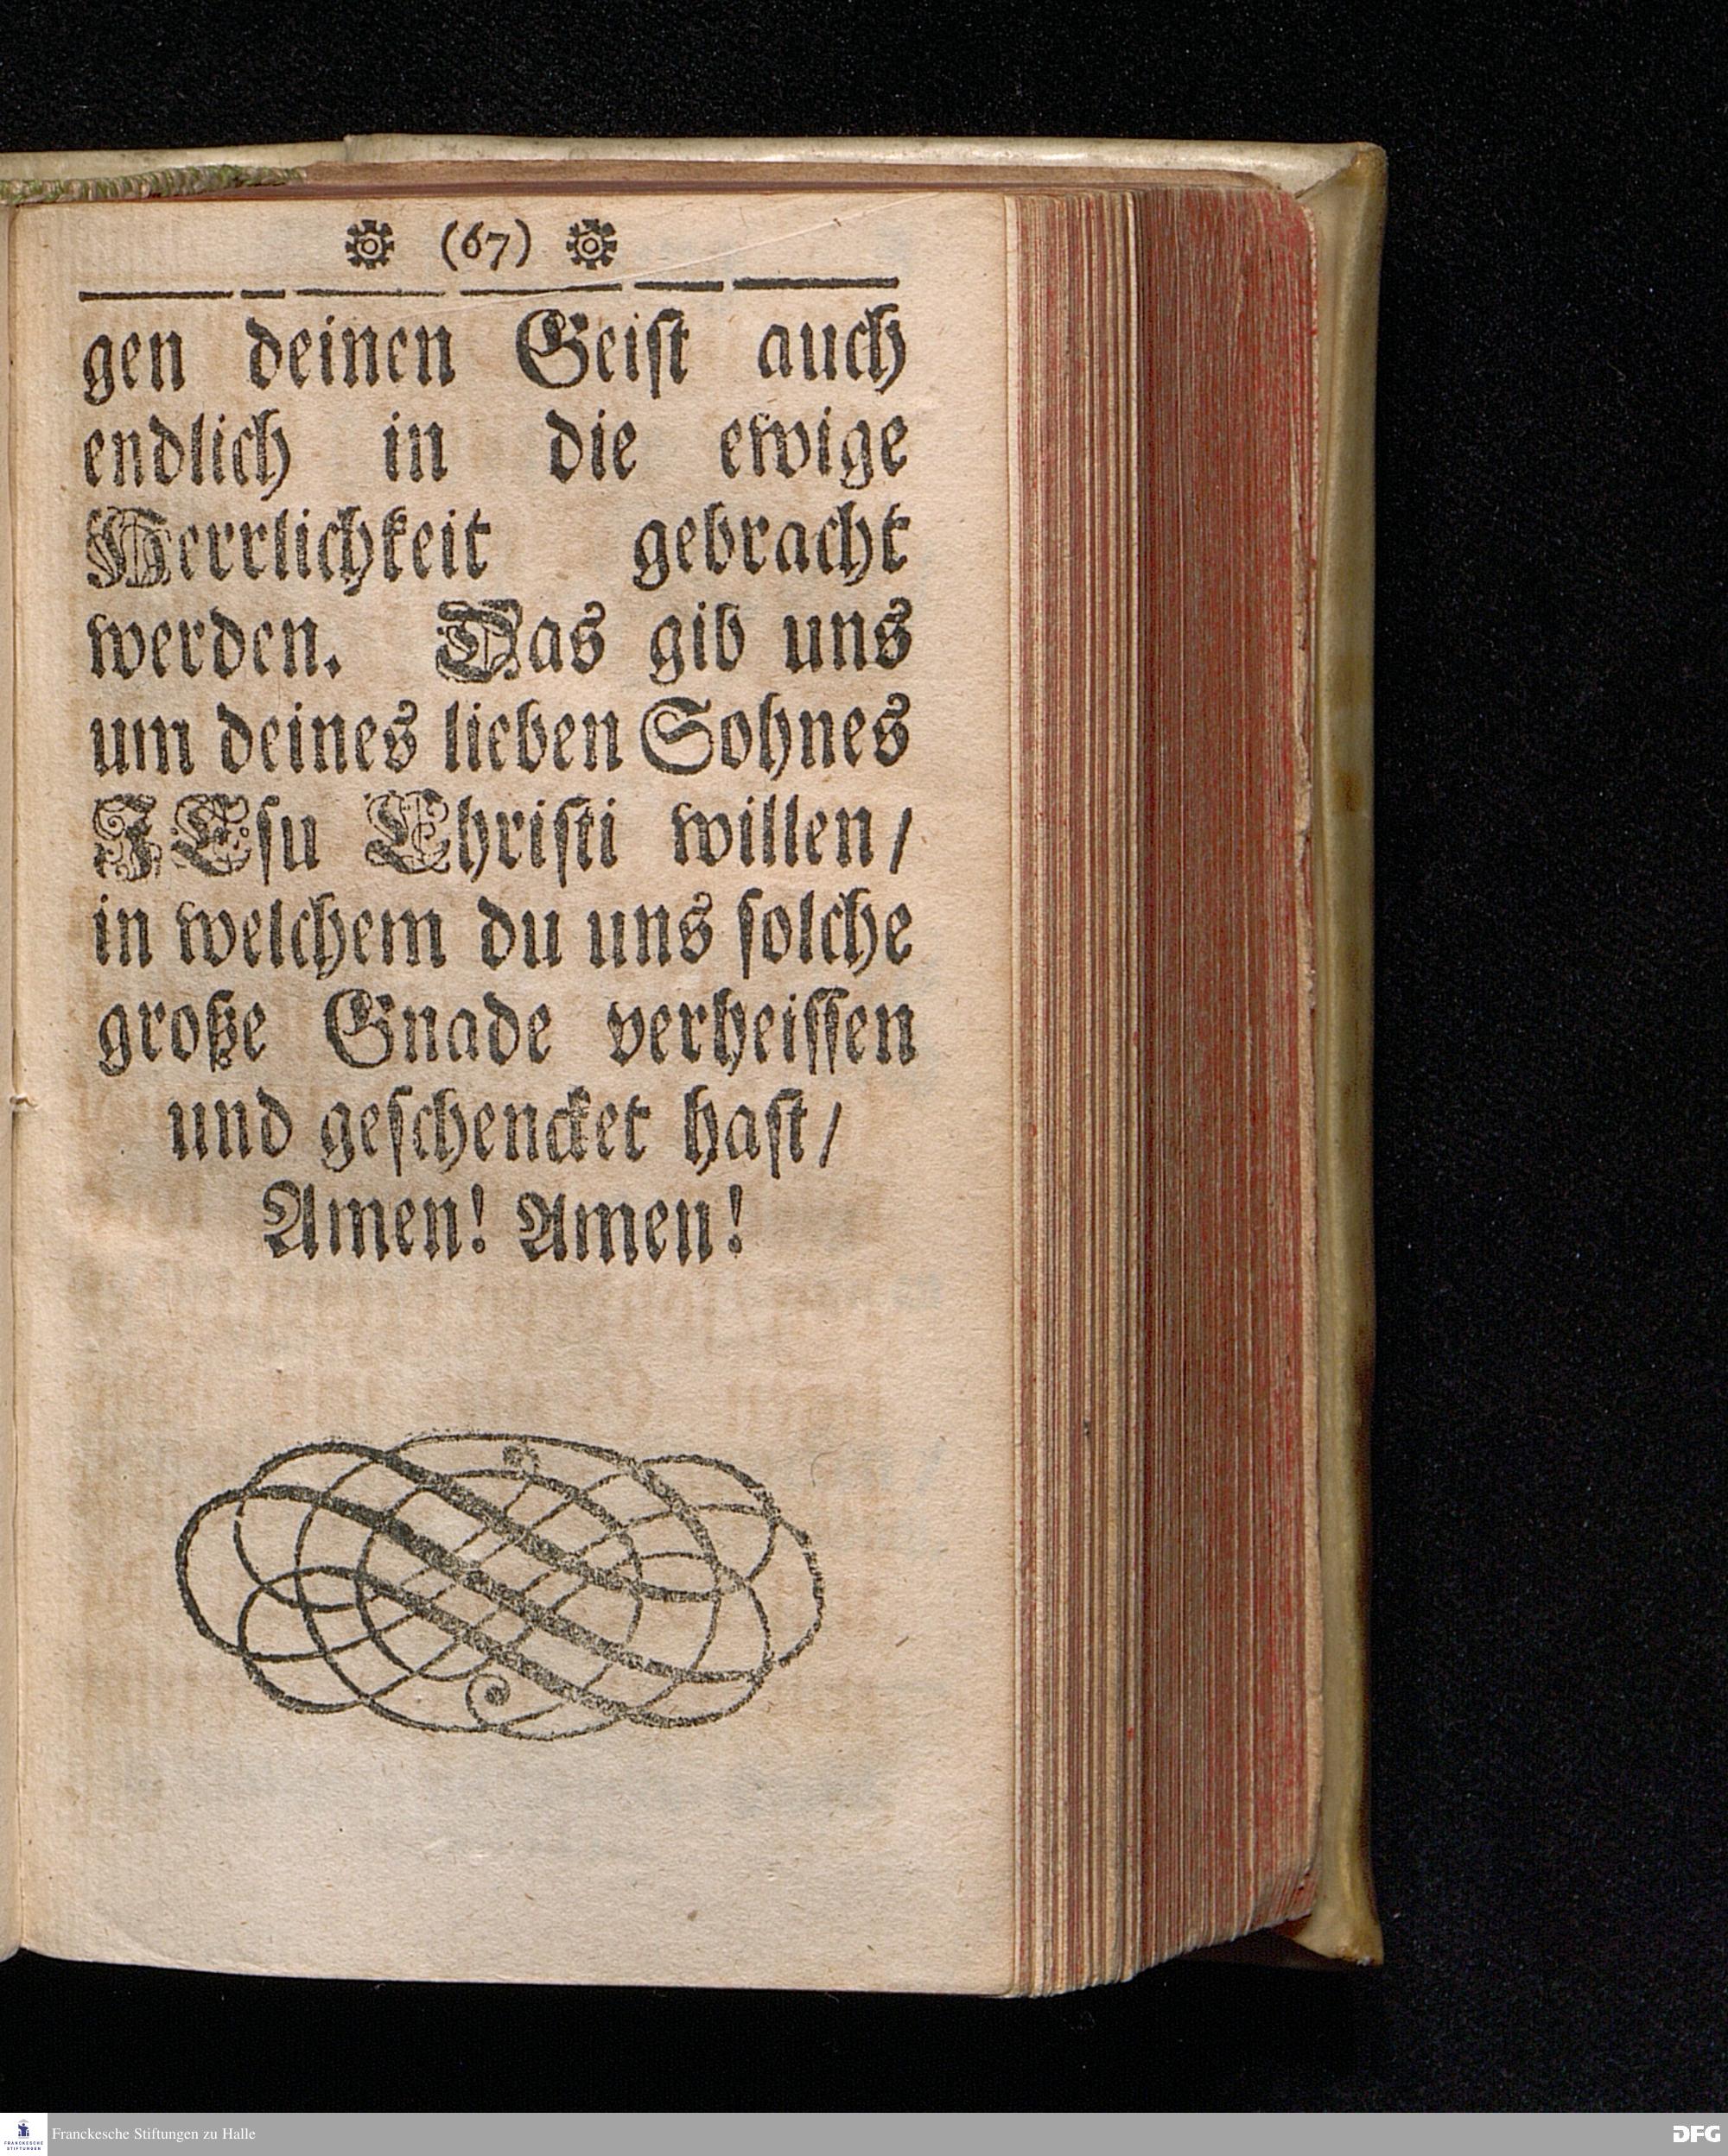 (67)
gen deinen Geiſt auch
endlich in die ewige
Herrlichkeit gebracht
werden. Das gib uns
um deines lieben Sohnes
JEſu Chriſti willen/
in welchem du uns ſolche
große Gnade verheiſſen
und geſchencket haſt/
Amen! Amen!
FRANCKESCHE
STIFTUNGEN
Franckesche Stiftungen zu Halle
DFG